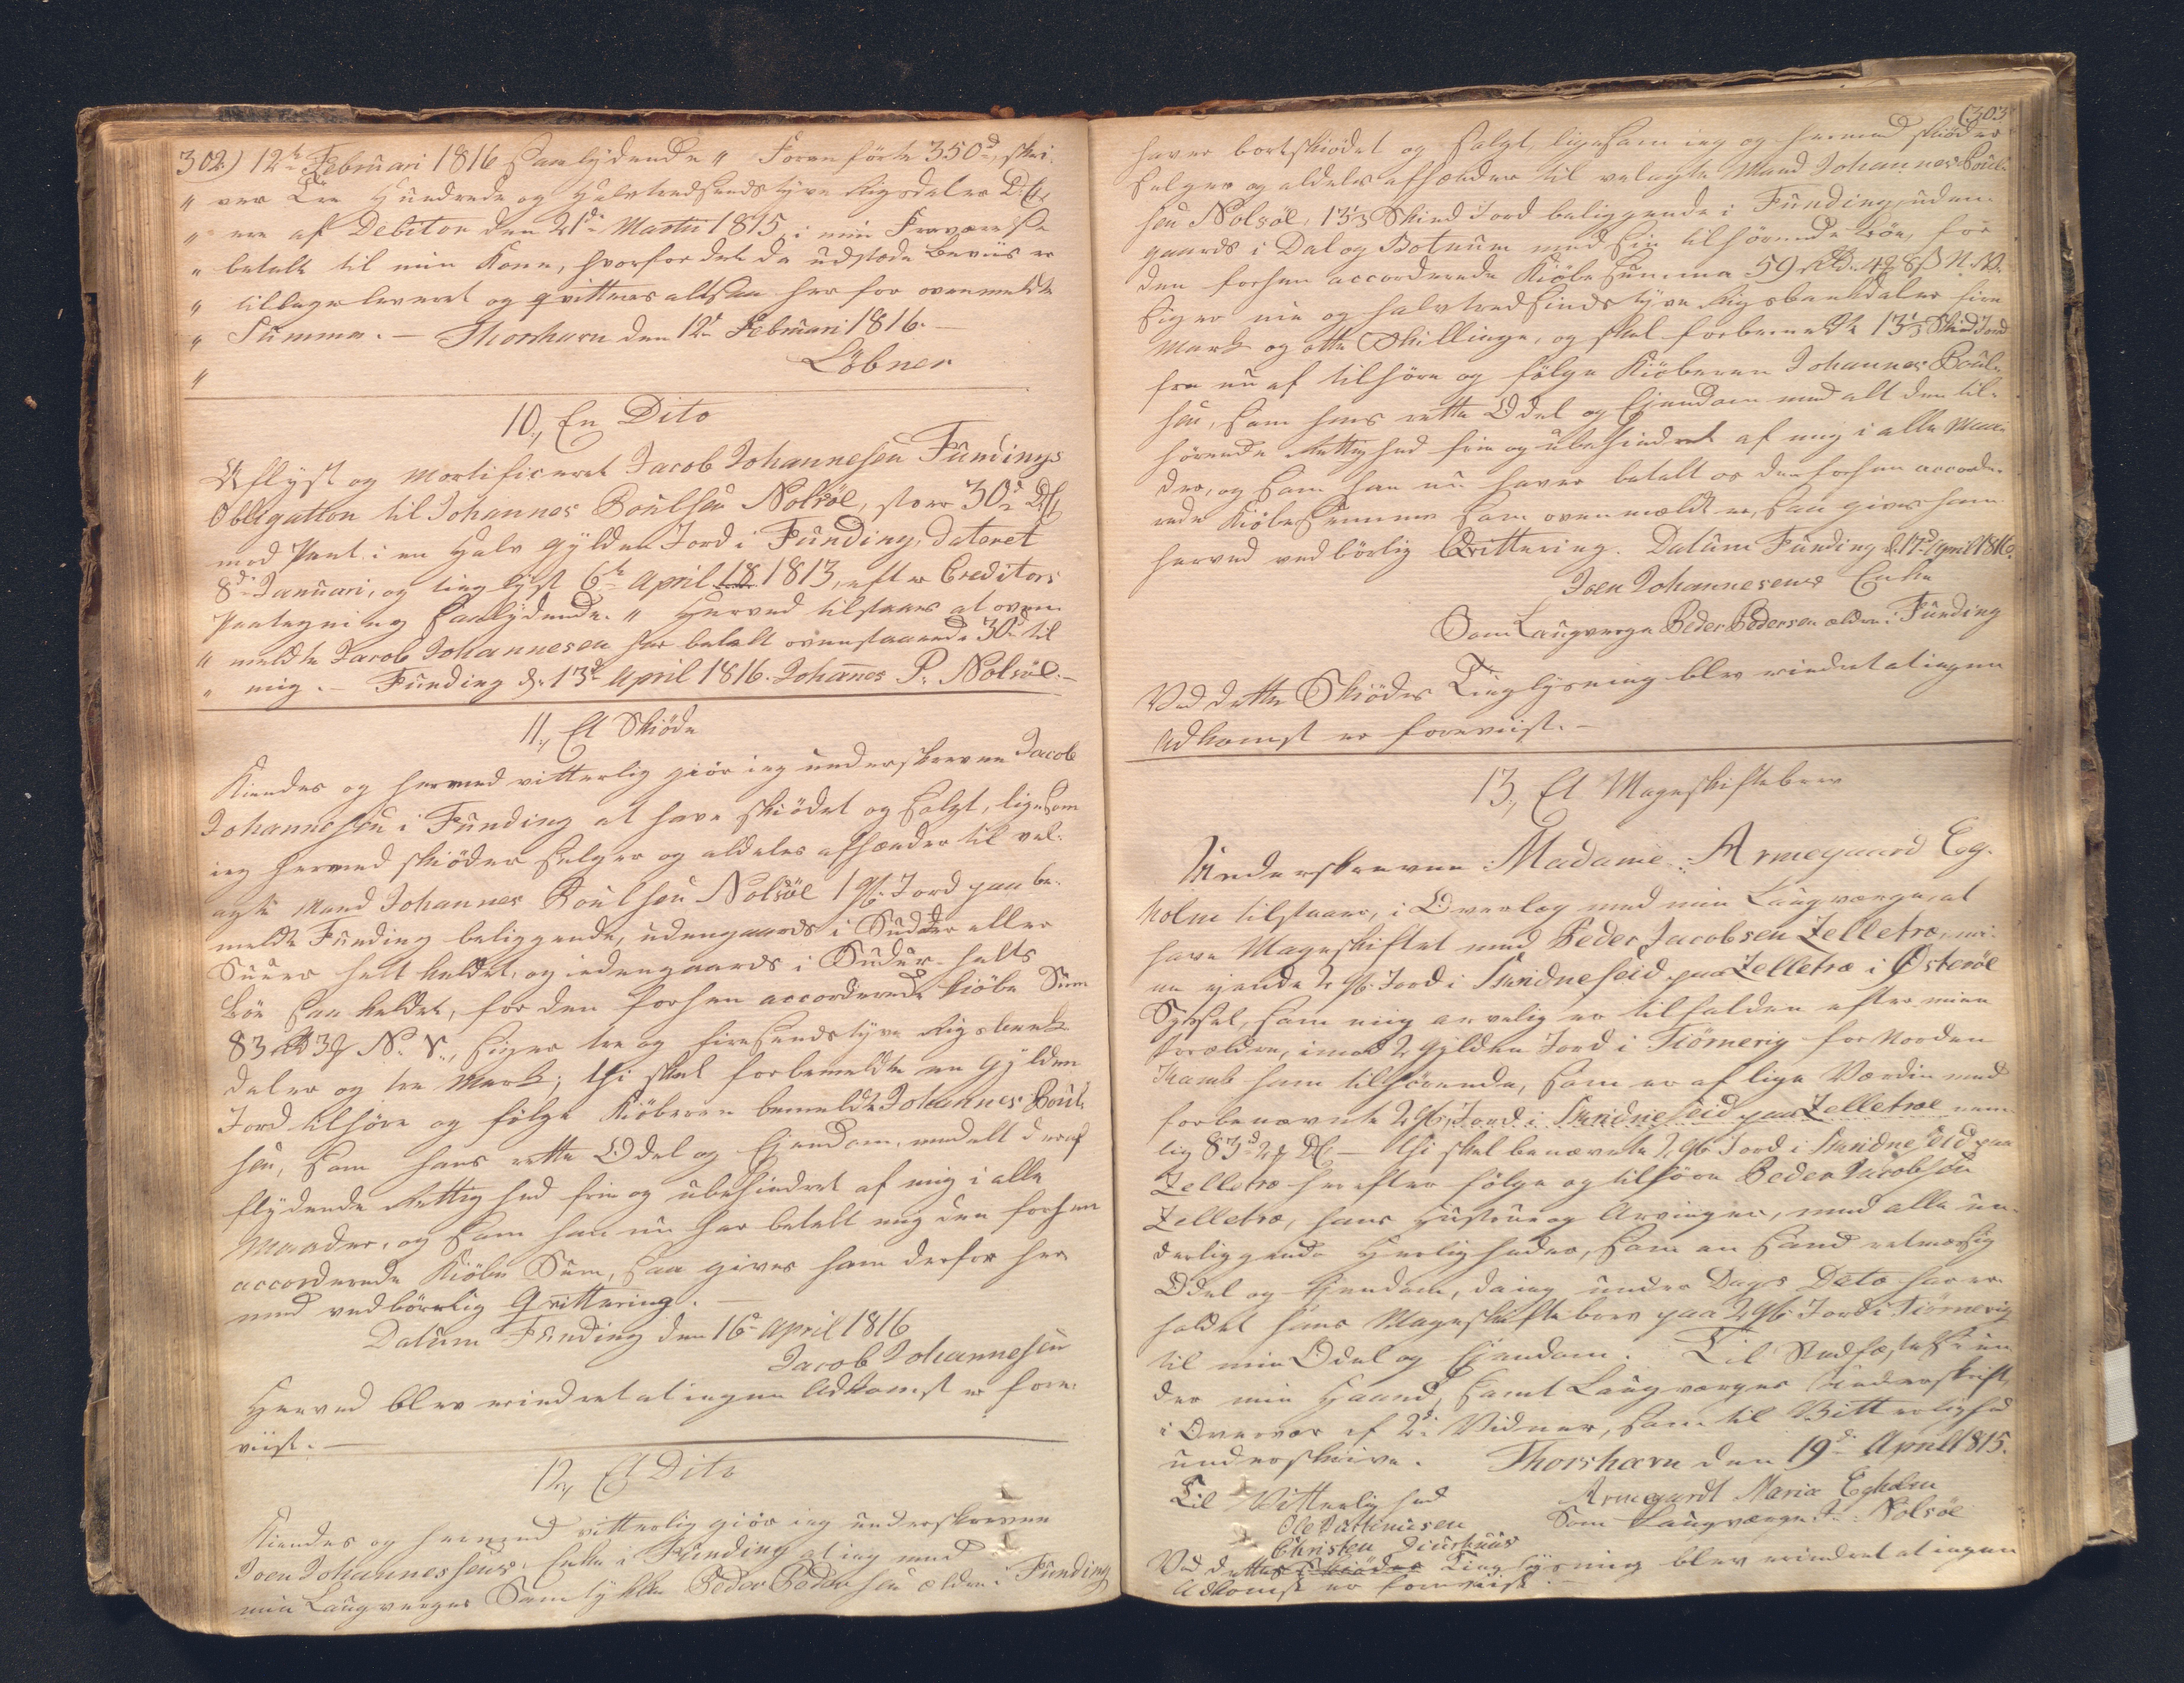 302.) 12te Februari 1816 saalydende " Foranførte 350d, skri-
" ver Tre Hundrede og Halvtredsindstyve Rigsdaler D. C.
" ere af Debitor den 21de Martii 1815, i min Fraværelse
" betalt til min Kone, hvorfor det da udstæde Beviis er
" tilbageleveret og qvitteres altsaa her for ovenmeldte
" Summa. — Thorshavn den 12te Februari 1816. —
" Löbner
10., En Dito
Aflyst og mortificeret Jacob Johannesen Fundings
Obligation til Johannes Poulsen Nolsöe, stor 30d D. C.
mod Pant i en Halv Gylden Jord i Funding, dateret
8de Januari, og tinglyst 6te April 18 1813, efter Creditors
Paategning saalydende. " Herved tilstaaes at oven-
" meldte Jacob Johannesen har betalt ovenstaaende 30d til
" mig. — Funding d. 13de April 1816. Johannes P. Nolsöe. —
11., Et Skiöde
Kiendes og hermed vitterlig giör ieg underskrevne Jacob
Johannesen i Funding at have skiödet og solgt, ligesom
ieg hermed skiöder selger og aldeles afhænder til vel-
agte Mand Johannes Poulsen Nolsöe 1 Gl. Jord paa be-
meldte Funding beliggende, udengaards i Sudder eller
Suurs halt kaldet, og indengaards i Sudur-halts
Böe saa kaldet, for den forhen accorderede Kiöbe Sum
83 Rbd 3 # N. V., siger tre og firesindstyve Rigsbank-
daler og tre Mark; thi skal forbemeldte en Gylden
Jord tilhöre og fölge Kiöberen bemeldte Johannes Poul-
sen, som hans rette Odel og Ejendom, med alt deraf
flydende Rettighed frie og ubehindret af mig i alle
Maader, og som han nu har betalt mig den forhen
accorderede Kiöbe Sum, saa gives ham derfor her-
med vedbörlig Qvittering. —
Datum Funding den 16de April 1816
Jacob Johannesen
Herved blev erindret at ingen Adkomst er fore-
viist. —
12., Et Dito
Kiendes og hermed vitterlig giör ieg underskrevne
Joen Johannessens Enke i Funding at ieg med
min Laugverges Samtykke Peder Pedersen ældre i Funding
(303
haver bortskiödet og solgt, ligesom ieg og hermed skiöder
selger og aldeles afhænder til velagte Mand Johannes Poul-
sen Nolsöe, 13⅓ Skind Jord beliggende i Funding, uden-
gaards i Dal og Botnum med sin tilhörende Böe, for
den forhen accorderede Kiöbe Summa 59 Rbd. 4 # 8 ß N. V.
siger nie og halvtredsindstyve Rigsbankdaler fire
Mark og otte Skillinge, og skal forbemeldte 13⅓ Skind Jord
fra nu af tilhöre og fölge Kiöberen Johannes Poul-
sen, som hans rette Odel og Ejendom med alt den til-
hörende Rettighed frie og ubehindret af mig i alle Maa-
der, og som han nu haver betalt os den forhen accorde-
rede Kiöbesumma som ovenmeldt er, saa gives ham
herved vedbörlig Qvittering. Datum Funding d. 17de April 1816.
Joen Johannesens Enke
Som Laugverge Peder Pedersen ældre i Funding
Ved dette Skiödes Tinglysning blev erindret at ingen
Adkomst er foreviist. —
13., Et Mageskiftebrev
Underskrevne Madame Armegaard Eg-
holm tilstaaer, i Overlæg med min Laugværge, at
have Mageskiftet med Peder Jacobsen Zelletræ, mi-
ne ejende 2 Gl. Jord i Sundneseid paa Zelletræ i Østeröe
Syssel, som mig arvelig er tilfalden efter mine
Forældre, imod 2 Gylden Jord i Tiörnevig for Norden
Kamb ham tilhörende, som er af lige Værdie med
forbenævnte 2 Gl. Jord i Sundneseid paa Zelletræ nem-
lig 83d 2 # D. C. — Thi skal benævnte 2 Gl. Jord i Sundneseid paa
Zelletræ herefter fölge og tilhöre Peder Jacobsen
Zelletræ, hans Hustrue og Arvinger, med alle un-
derliggende Herligheder, som en sand retmæssig
Odel og Ejendom, da ieg under Dags Dato har er-
holdet hans Mageskiftebrev paa 2 Gl. Jord i Tiörnevig
til min Odel og Ejendom. Til Stadfæstelse un-
der min Haand, samt Laugværges Underskrift,
i Overvær af 2de Vidner, som til Vitterlighed
underskrive. Thorshavn den 19de April 1815.
Til Vitterlighed Armegardt Maria Egholm
Ole Rasmusen Som Laugværge J. Nolsöe
Christen Diurhuus
Ved dettes Skiödes Tinglysning blev erindret at ingen
Adkomst er foreviist. —